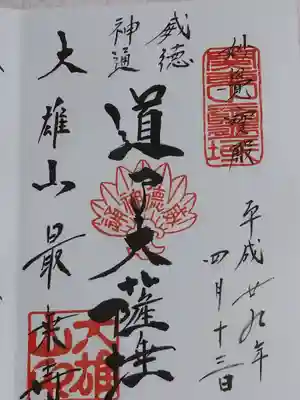 妙覺寶殿
平成廿九年
四月十三日
威徳
神通
道了大薩埵
大雄山最乗寺
大雄